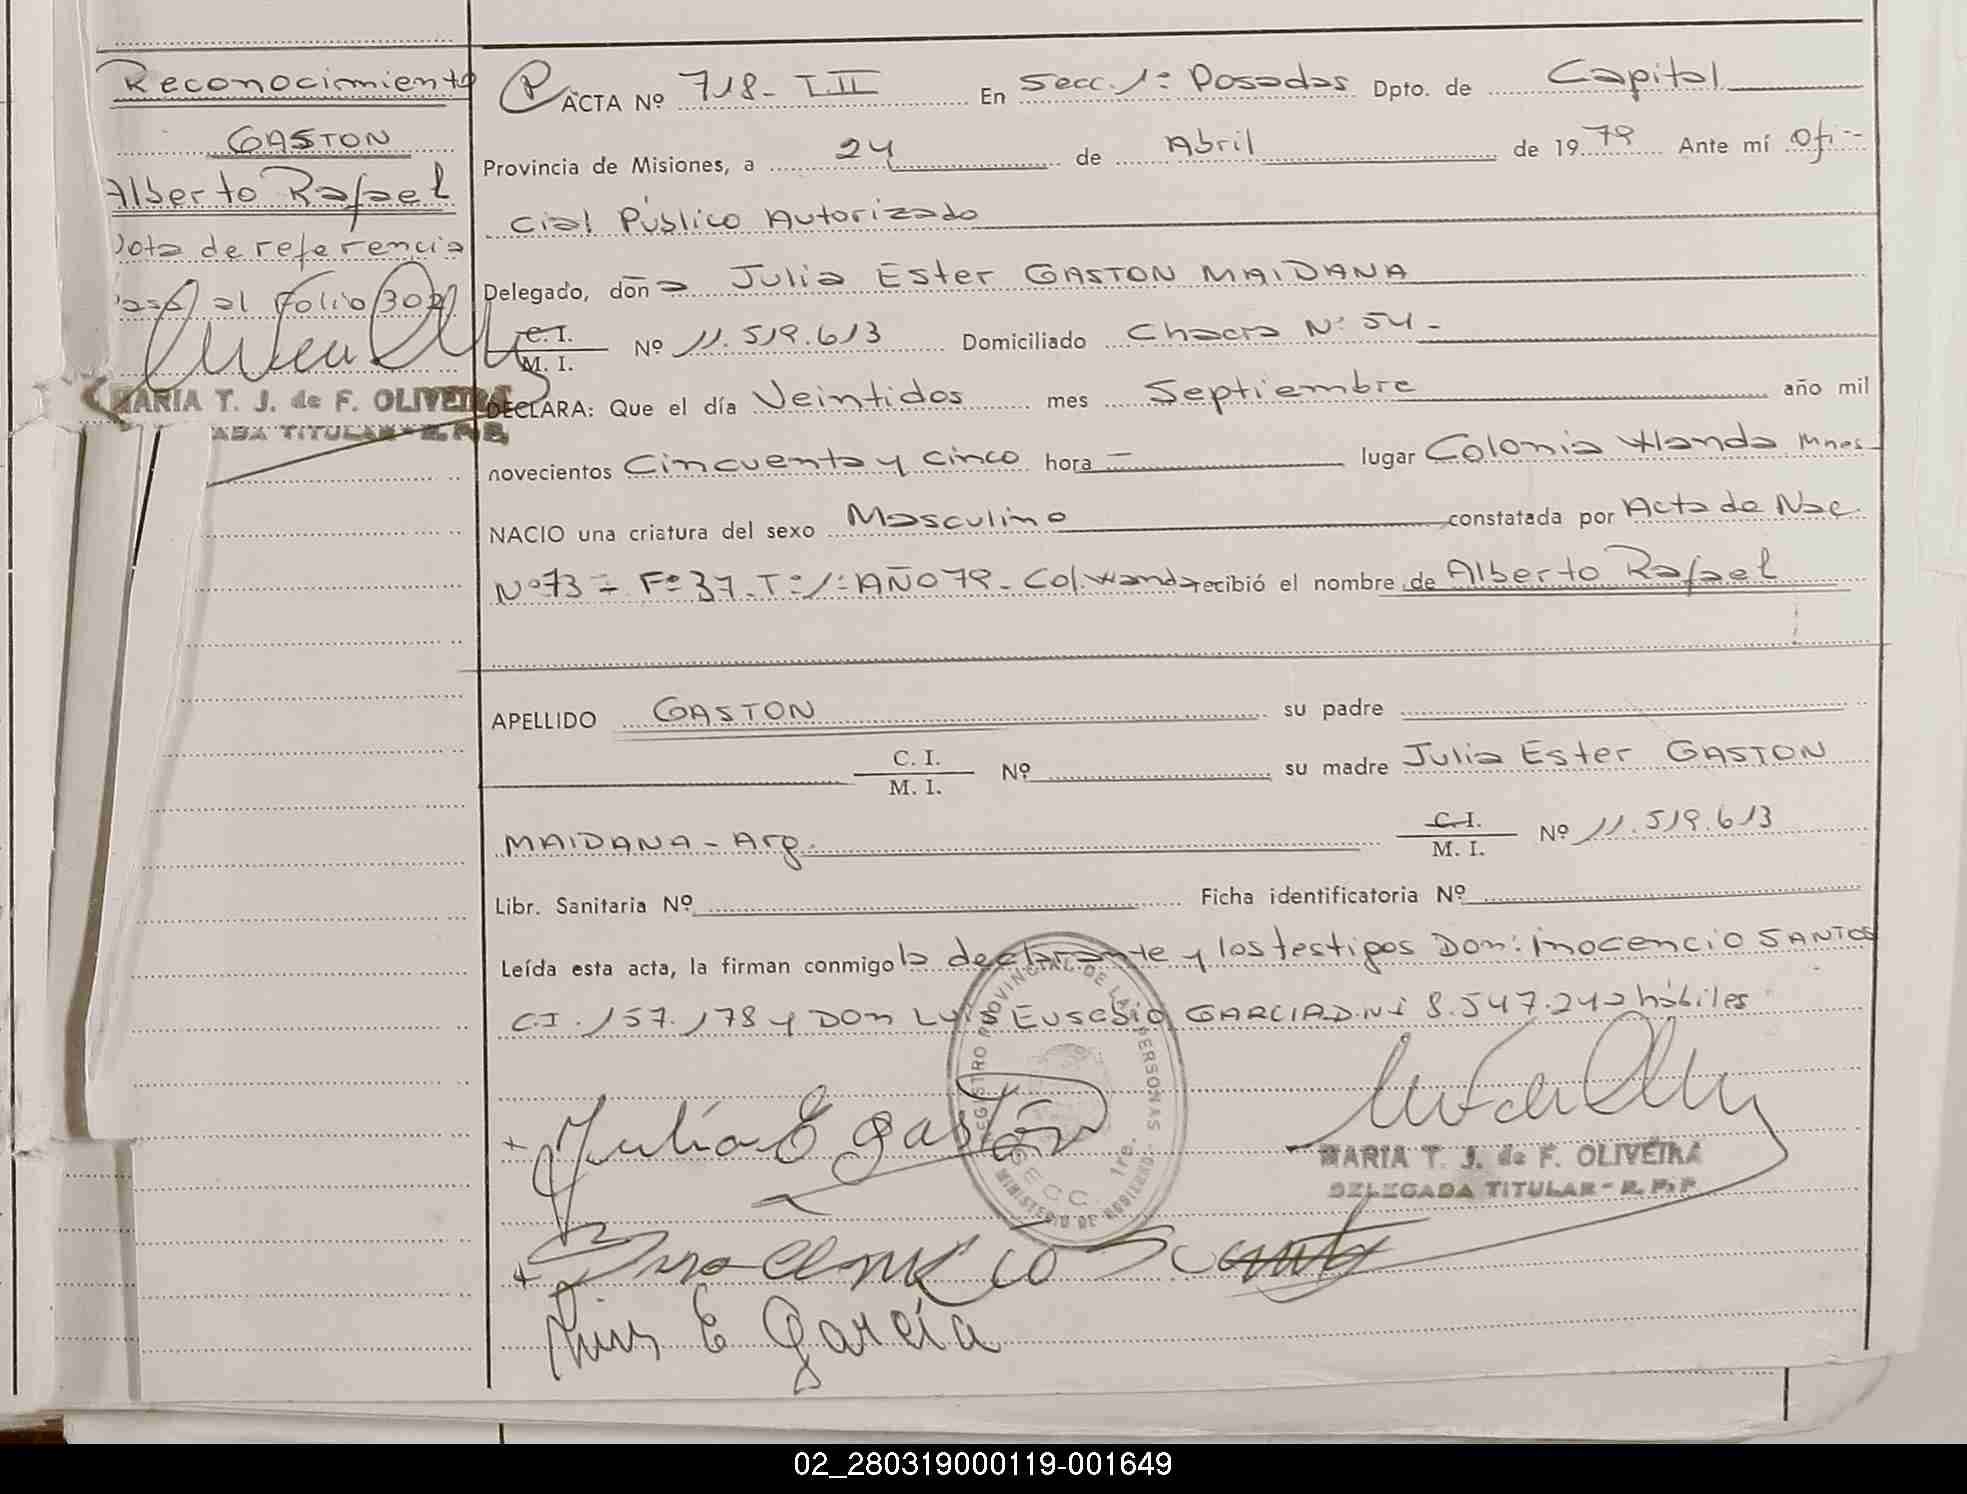 Reconocimiento
GASTON
Alberto Rafael
Nota de referencia
Pasa al Folio 302
MARIA T. J. de F. OLIVEIRA
ADA TITULAR - R. P. P.
P ACTA Nº 718 - T.II En Secc. 1ª Posadas Dpto. de Capital
Provincia de Misiones, a 24 de Abril de 1979 Ante mí Ofi-
cial Público Autorizado
Delegado, doña Julia Ester GASTON MAIDANA
C. I.
M. I. Nº 11.519.613 Domiciliado Chacra Nº 54 -
DECLARA: Que el día Veintidos mes Septiembre año mil
novecientos Cincuenta y cinco hora — lugar Colonia Wanda Mnes
NACIO una criatura del sexo Masculino constatada por Acta de Nac.
Nº 73 - Fº 37 - T: 1: AÑO 79 - Col. Wanda recibió el nombre de Alberto Rafael
APELLIDO GASTON su padre
C. I.
M. I. Nº su madre Julia Ester GASTON
MAIDANA - Arg. C. I.
M. I. Nº 11.519.613
Libr. Sanitaria Nº Ficha identificatoria Nº
Leída esta acta, la firman conmigo la declarante y los testigos Don: Inocencio SANTOS
C.I. 157.178 y DON Luis Eusebio GARCIA D.N.I 8.547.242 hábiles
REGISTRO PROVINCIAL DE LAS PERSONAS
SECC. 1re.
MINISTERIO DE GOBIERNO
+ Julia E gastón
MARIA T. J. de F. OLIVEIRA
DELEGADA TITULAR - R. P. P.
+ Inocencio Santo
Luis E García
02_280319000119-001649